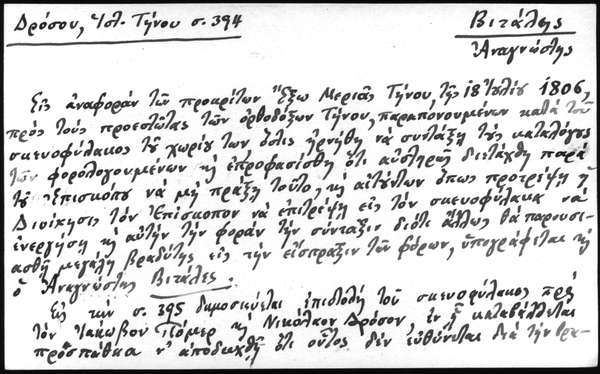 Δρόσου, Ἱστ. Τήνου σ. 394
Βιτάλης
Ἀναγνώστης
Εἰς ἀναφορὰν τῶν προκρίτων Ἔξω Μεριᾶς Τήνου, τῆς 18 Ἰουλίου 1806,
πρὸς τοὺς προεστῶτας τῶν ὀρθοδόξων Τήνου, παραπονουμένων κατὰ τοῦ
σκευοφύλακος τοῦ χωρίου των, ὅστις ἠρνήθη νὰ συντάξῃ τοὺς καταλόγους
τῶν φορολογουμένων κὴ ἐπροφασίσθη ὅτι αὐστηρῶς διετάχθη παρὰ
τοῦ Ἐπισκόπου νὰ μὴ πράξῃ τοῦτο, κὴ αἰτούντων ὅπως προτρέψῃ ἡ
Διοίκησις τὸν Ἐπίσκοπον νὰ ἐπιτρέψῃ εἰς τὸν σκευοφύλακα νὰ
ἐνεργήσῃ κὴ αὐτὴν τὴν φορὰν τὴν σύνταξιν διότι ἄλλως θὰ παρουσι-
ασθῇ μεγάλη βραδύτης εἰς τὴν εἴσπραξιν τῶν φόρων, ὑπογράφεται κὴ
ὁ Ἀναγνώστης Βιτάλες.
Εἰς τὴν σ. 395 δημοσιεύεται ἐπιστολὴ τοῦ σκευοφύλακος πρὸς
τὸν Ἰάκωβον Πόμερ κὴ Νικόλαον Δρόσον, ἐν ᾗ καταβάλλεται
προσπάθεια ν' ἀποδειχθῇ ὅτι οὗτος δὲν εὐθύνεται διὰ τὴν βρα-